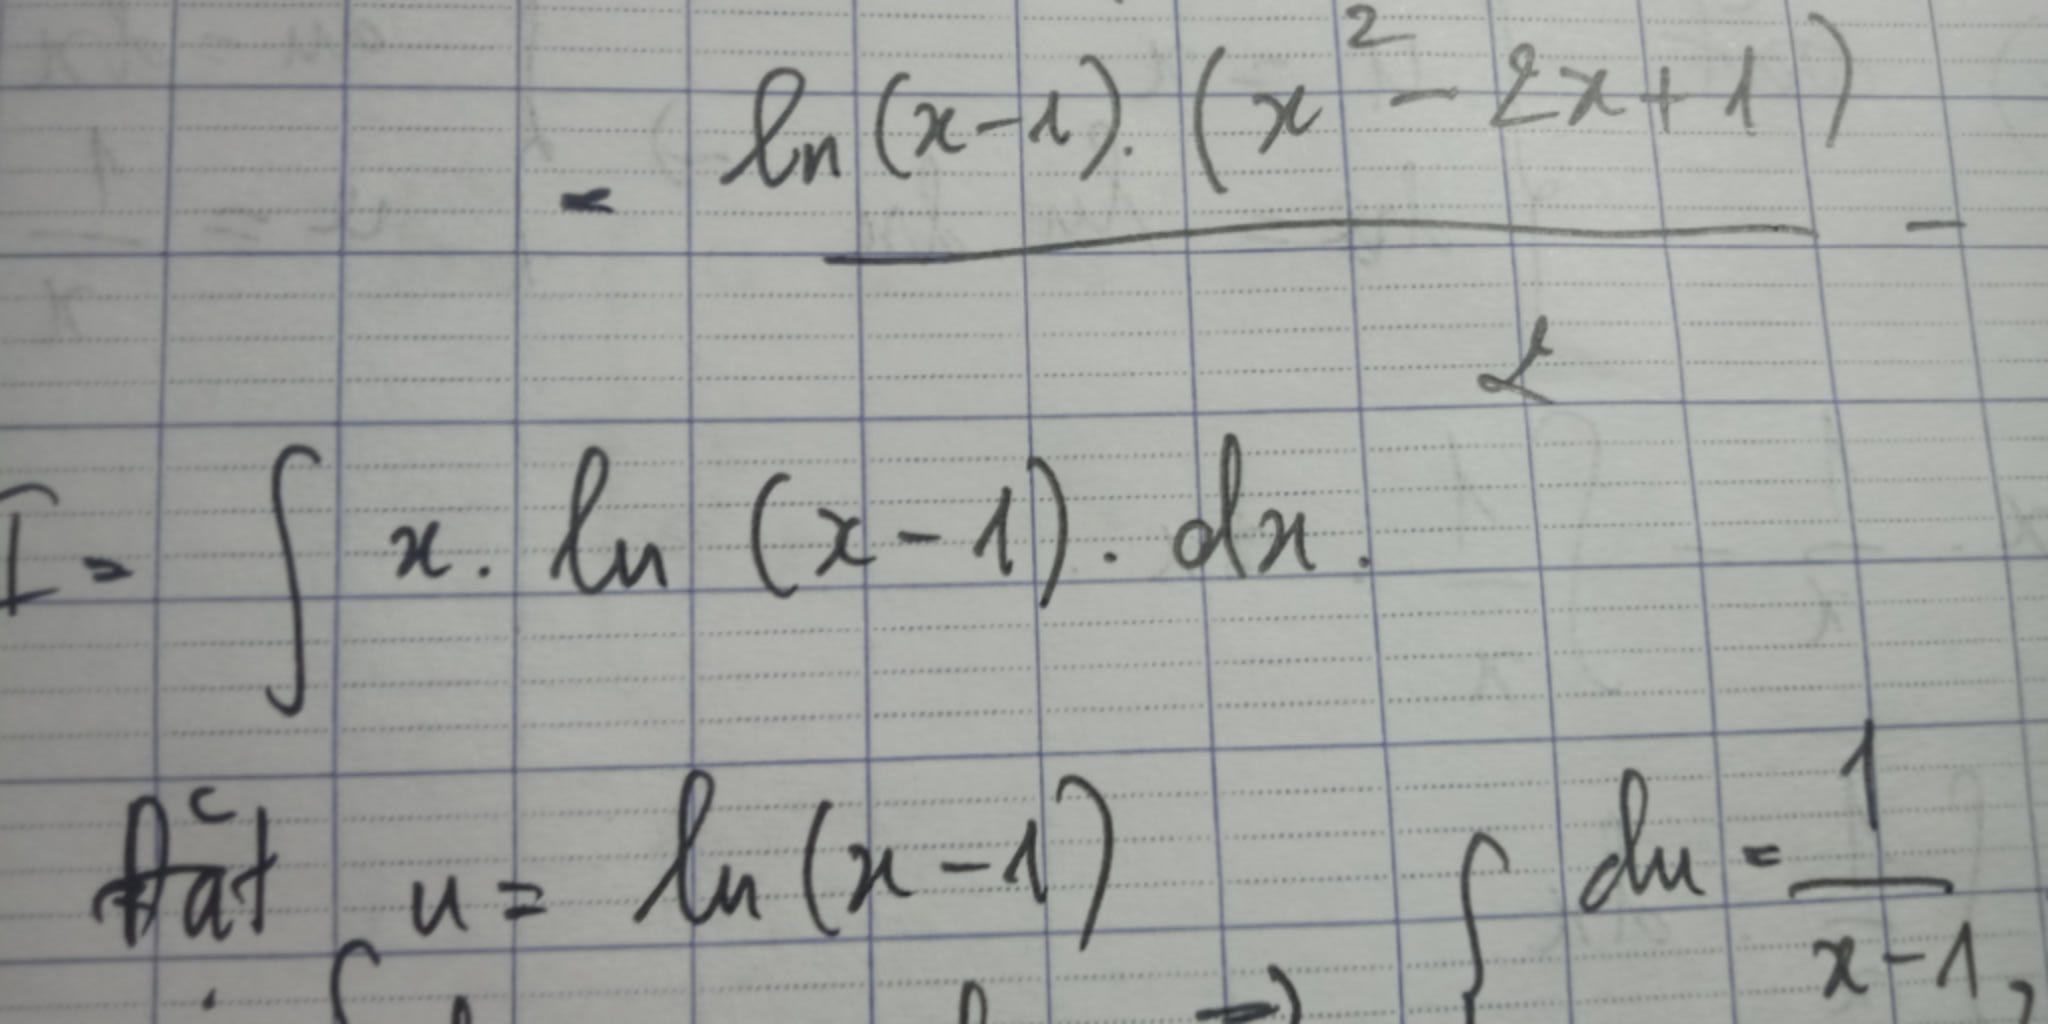 = ln(x-1).(x² - 2x + 1) / 2 -
I = ∫ x. ln (x-1). dx.
Đặt u = ln(x-1)
du = 1 / x-1